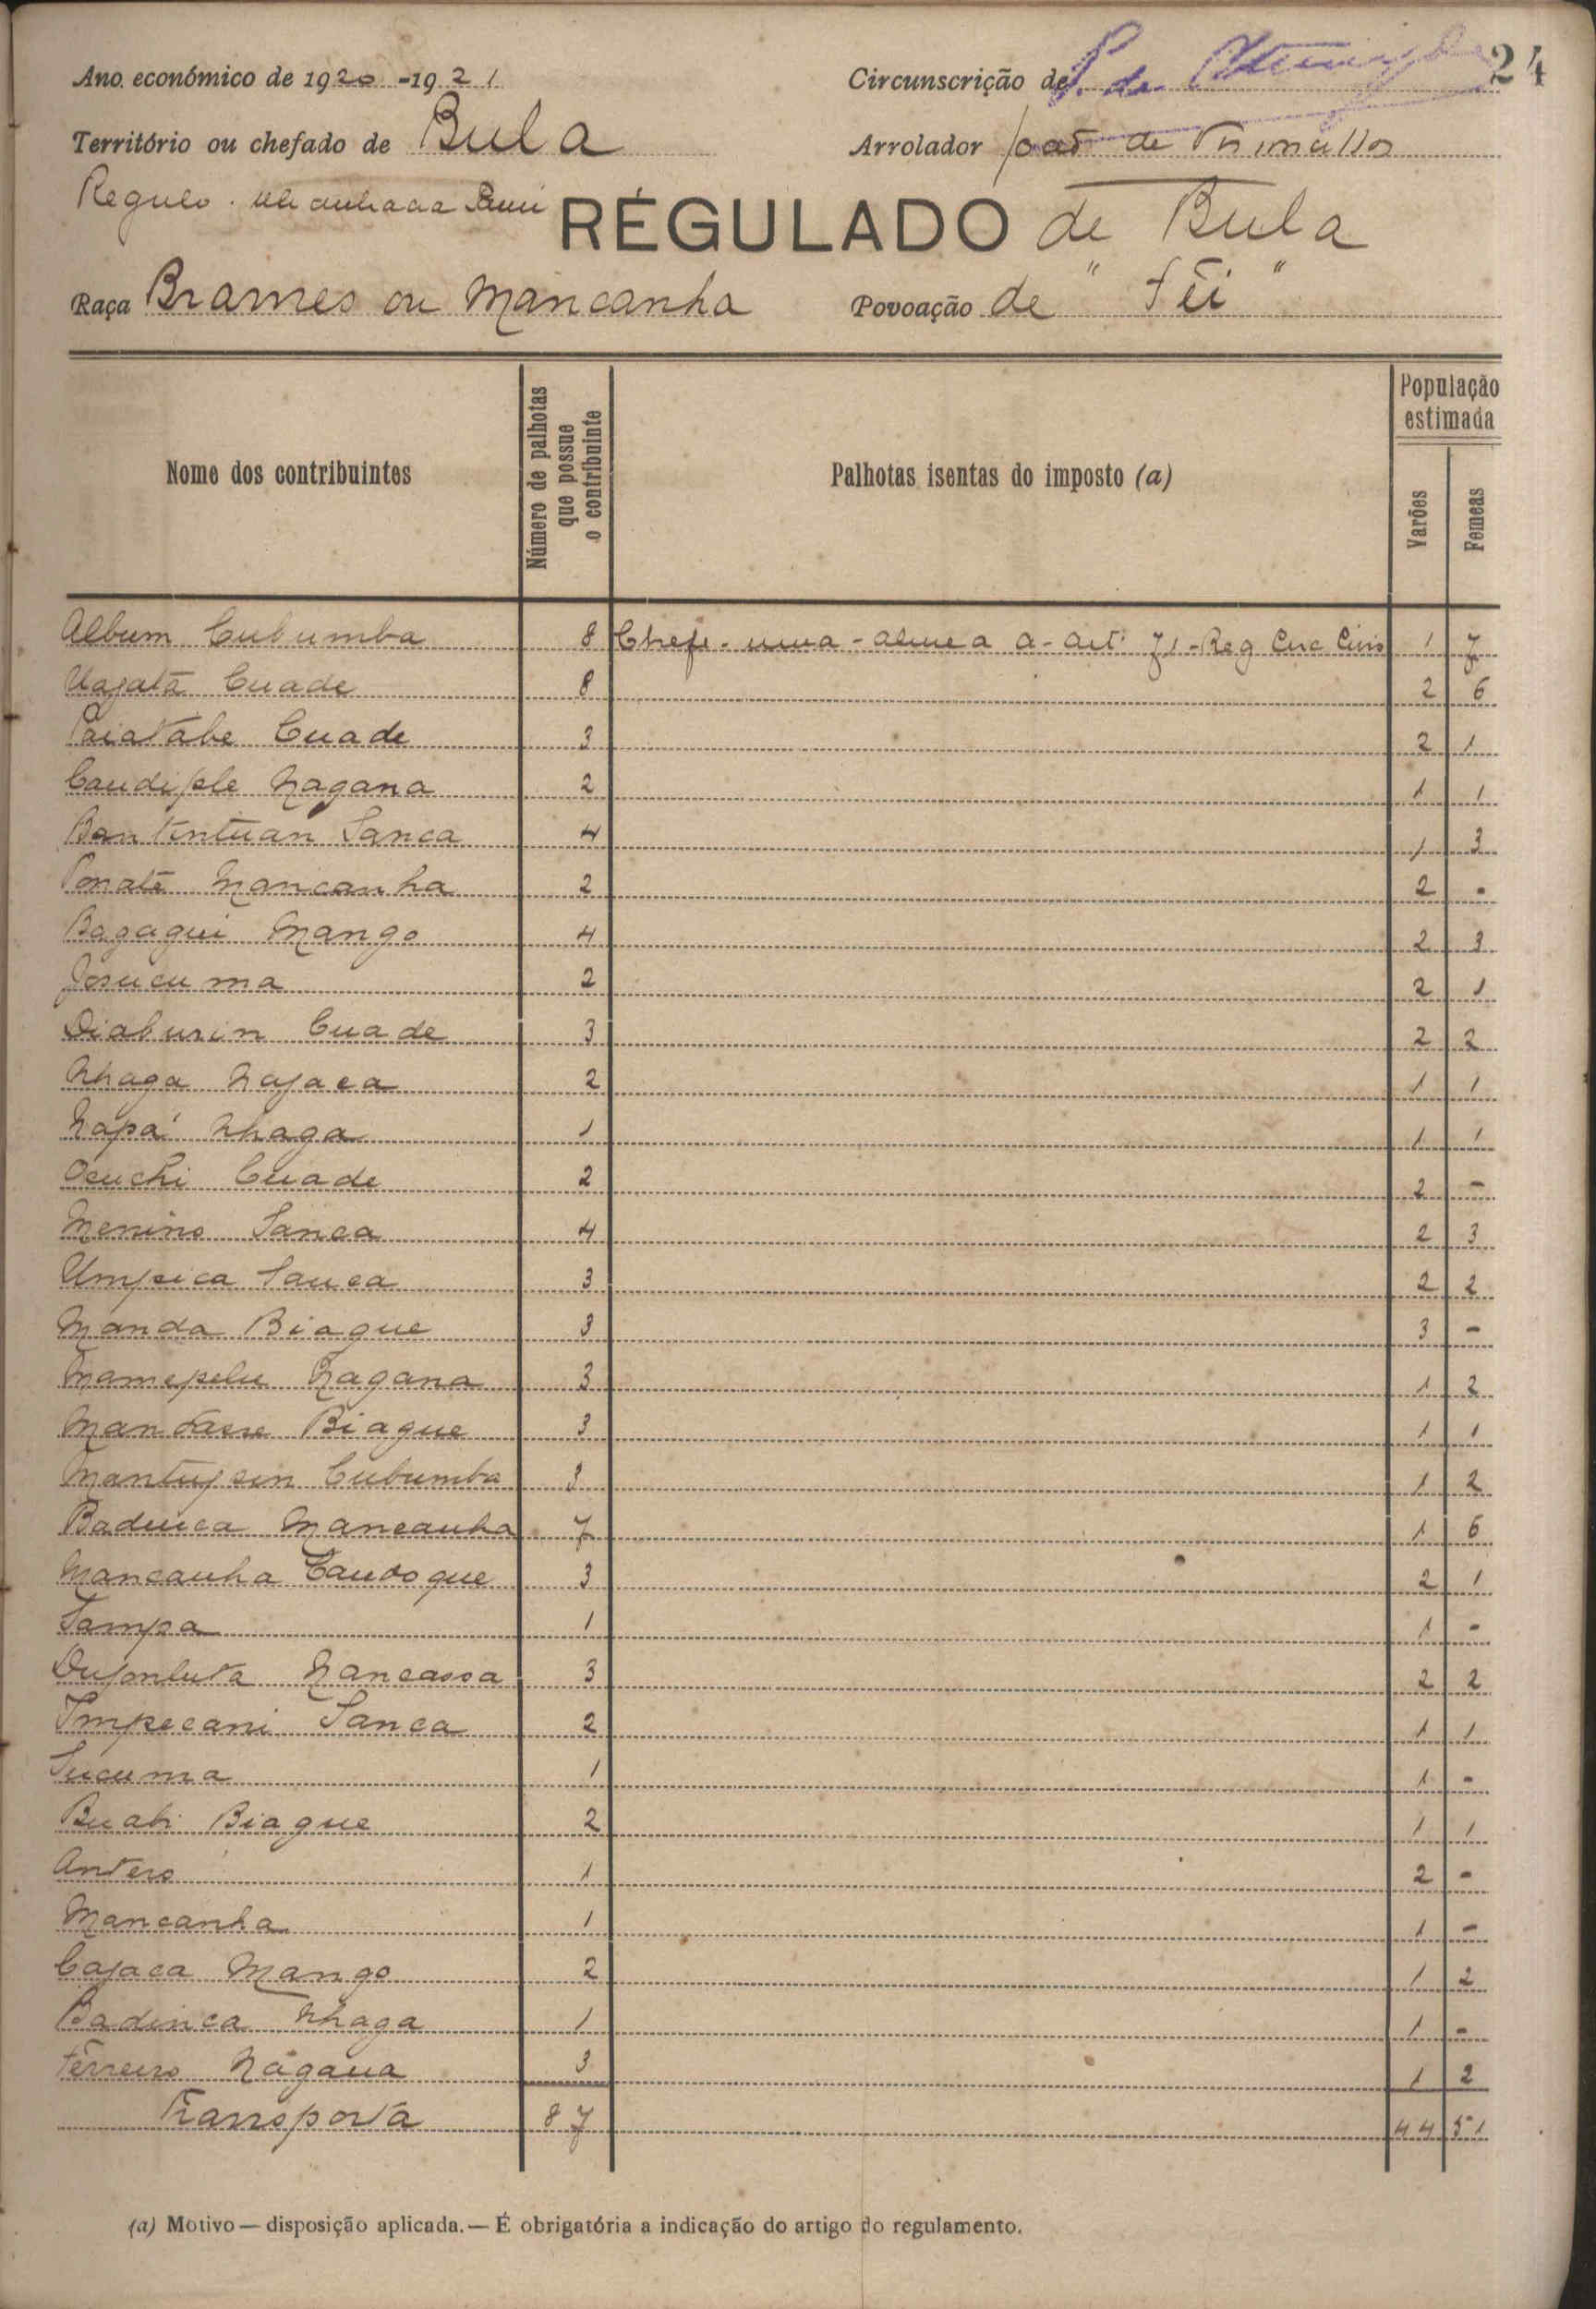 24
Ano económico de 1920-1921 Circunscrição de
Território ou chefado de Bula Arrolador João de
Regulo. REGULADO de Bula
Raça Brames ou Mancanha Povoação de "Fei"
Nome dos contribuintes Número de palhotas que possue o contribuinte Palhotas isentas do imposto (a) População estimada Varões Femeas
Album Cubumba 8 Chefe - uma - alinea a - art. 71 - Reg Circ Civis 1 7
Uajatã Cuade 8 2 6
Cuade 3 2 1
Nagana 2 1 1
Sanca 4 1 3
Mancanha 2 2 -
Bagagui Mango 4 2 3
Josucuma 2 2 1
Diaburin Cuade 3 2 2
Nhaga Najaca 2 1 1
Napá Nhaga 1 1 1
Ocuchi Cuade 2 2 -
Menino Sanca 4 2 3
Umpsica Sanca 3 2 2
Manda Biague 3 3 -
Nagana 3 1 2
Biague 3 1 1
Cubumba 3 1 2
Badinca Mancanha 7 1 6
Mancanha Caudoque 3 2 1
Sampa 1 1 -
Nancassa 3 2 2
Impecani Sanca 2 1 1
Sucuma 1 1 -
Buabi Biague 2 1 1
Antero 1 2 -
Mancanha 1 1 -
Cajaca Mango 2 1 2
Badinca Nhaga 1 1 -
Ferreiro Nágana 3 1 2
Transporta 87 44 51
(a) Motivo — disposição aplicada. — É obrigatória a indicação do artigo do regulamento.